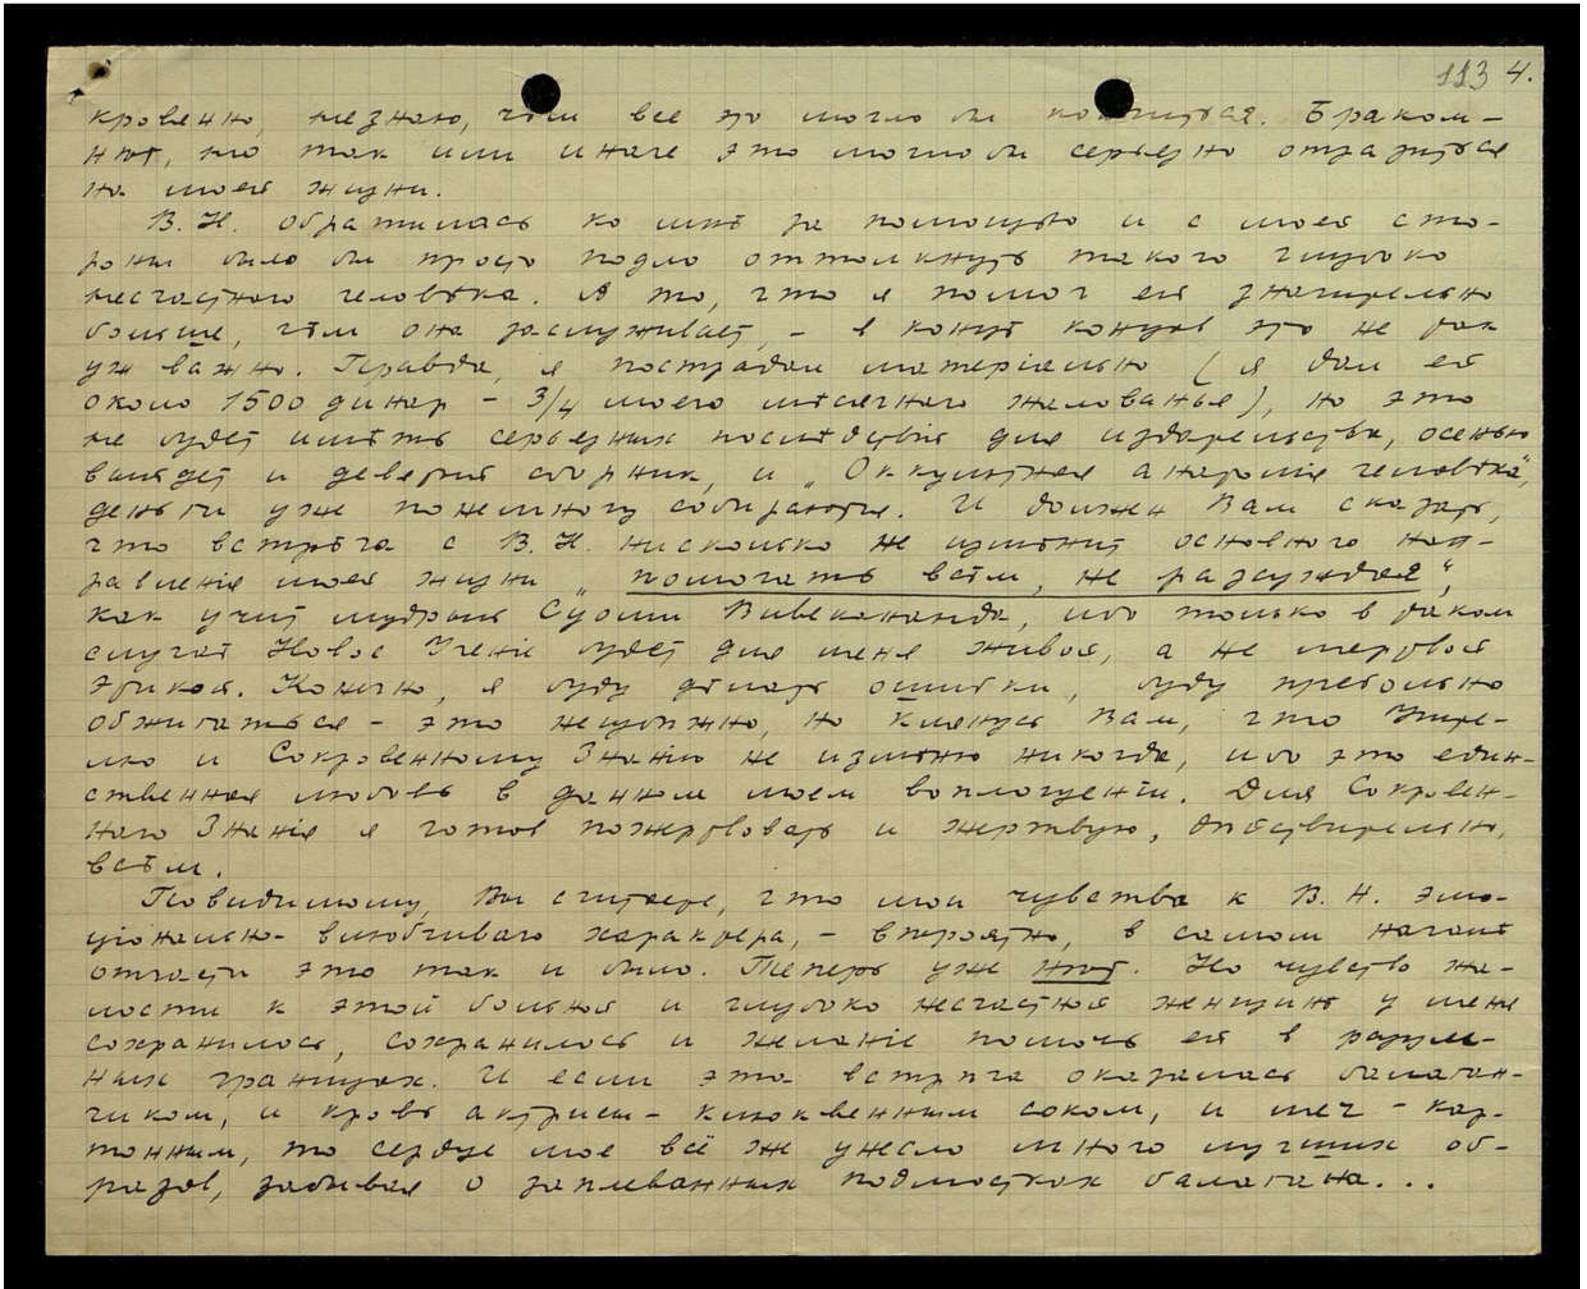 113 4.
кровенно, не знаю, чѣм все это могло бы кончиться. Браком –
нѣт, но так или иначе это могло бы серьезно отразиться
на моей жизни.
В. Н. обратилась ко мнѣ за помощью и с моей сто-
роны было бы просто подло оттолкнуть такого глубоко
несчастного человѣка. А то, что я помог ей значительно
больше, чѣм она заслуживает, – в концѣ концов это не так
уж важно. Правда, я пострадал матеріально (я дал ей
около 1500 динар – 3/4 моего мѣсячного жалованья), но это
не будет имѣть серьезных послѣдствій для издательства, осенью
выйдет и девятый сборник, и „Оккультная анатомія человѣка",
деньги уже понемногу собираются. И должен Вам сказать,
что встрѣча с В. Н. нисколько не измѣнит основного нап-
равленія моей жизни „помогать всѣм, не разсуждая",
как учит мудрый Суоми Вивекананда, ибо только в таком
случаѣ Новое Ученіе будет для меня живой, а не мертвой
этикой. Конечно, я буду дѣлать ошибки, буду пребольно
обжигаться – это неизбѣжно, но клянусь Вам, что Учите-
лю и Сокровенному Знанію не измѣню никогда, ибо это един-
ственная любовь в данном моем воплощеніи. Для Сокровен-
ного Знанія я готов пожертвовать и жертвую, дѣйствительно,
всѣм.
Повидимому, Вы считаете, что мои чувства к В. Н. эмо-
ціонально-влюбчиваго характера, – вѣроятно, в самом началѣ
отчасти это так и было. Теперь уже нѣт. Но чувство жа-
лости к этой больной и глубоко несчастной женщинѣ у меня
сохранилось, сохранилось и желаніе помочь ей в разум-
ных границах. И если эта встрѣча оказалась балаган-
чиком, и кровь актрисы – клюквенным соком, и меч – кар-
тонным, то сердце мое всё же унесло много лучших об-
разов, забывая о заплеванных подмостках балагана...